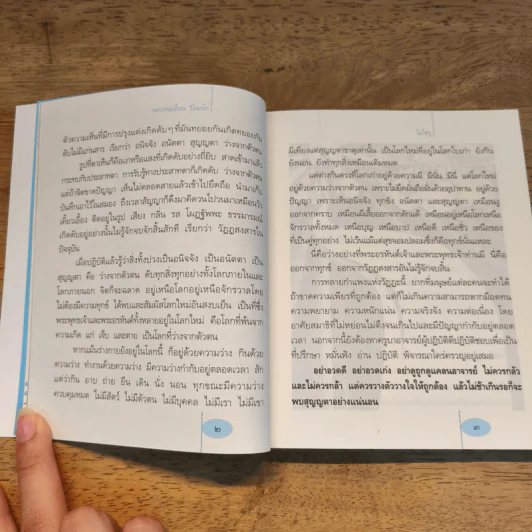 หลวงพ่อเยื้อน
ตัวความเห็นที่มีการปรุงแต่งเกิดดับๆ ที่มันทยอยกันเกิดทยอยกัน
ดับไม่มีแก่นสาร เรียกว่า อนิจจัง อนัตตา สุญญตา ว่างจากตัวตน
รูปที่ตาเห็นก็คือเงาหรือแสงที่เกิดดับอย่างถี่ยิบ สาดเข้ามาแล้ว
กระทบกับประสาทตา การรับรู้ทางประสาทตาก็เกิดดับ ว่างจากตัวตน
แต่ถ้าจิตขาดปัญญา เห็นไม่ตลอดสายแล้วเข้าไปยึดถือ นำมาเก็บ
บันทึกเอาไว้ในสมอง ถึงเวลาสัญญาก็ดึงมาคิดวนไปวนมาเหมือนวัว
เคี้ยวเอื้อง ติดอยู่ในรูป เสียง กลิ่น รส โผฏฐัพพะ ธรรมารมณ์
เกิดดับอยู่อย่างนั้นไม่รู้จักจบสักสิ้นสักที เรียกว่า วัฏฏสงสารใน
ปัจจุบัน
เมื่อปฏิบัติแล้วรู้ว่าสิ่งทั้งปวงเป็นอนิจจัง เป็นอนัตตา เป็น
สุญญตา คือ ว่างจากตัวตน ดับทุกสิ่งทุกอย่างทั้งโลกภายในและ
โลกภายนอก จิตก็จะฉลาด อยู่เหนือโลกอยู่เหนือจักรวาลโดย
ไม่ต้องมีความทุกข์ ได้พบและสัมผัสโลกใหม่อันสงบเย็น เป็นที่ซึ่ง
พระพุทธเจ้าและพระอรหันต์ทั้งหลายอยู่ในโลกใหม่ คือโลกที่พ้นจาก
ความเกิด แก่ เจ็บ และตาย เป็นโลกที่ว่างจากตัวตน
หากแม้นร่างกายยังอยู่ในโลกนี้ ก็อยู่ด้วยความว่าง กินด้วย
ความว่าง ทำงานด้วยความว่าง มีความว่างกำกับอยู่ตลอดเวลา สัก
แต่ว่ากิน อาบ ถ่าย ยืน เดิน นั่ง นอน ทุกขณะมีความว่าง
ควบคุมหมด ไม่มีสัตว์ ไม่มีตัวตน ไม่มีบุคคล ไม่มีเรา ไม่มีเขา
๒
มีเพียงแต่สุญญตาธาตุเท่านั้น เป็นโลกใหม่ที่อยู่ในโลกใบเก่า ยังกิน
ยังนอน ยังทำทุกสิ่งเหมือนเดิมหมด
แต่ต่างกันตรงที่โลกเก่าอยู่ด้วยความมี มีนั่น มีนี่ แต่โลกใหม่
อยู่ด้วยความว่างจากตัวตน เพราะไม่ยึดมั่นถือมั่นด้วยอุปาทาน อยู่ด้วย
ปัญญา เพราะเห็นอนิจจัง ทุกขัง อนัตตา และสุญญตา เหมือนงู
ออกจากคราบ เหมือนผีเสื้อออกจากดักแด้ เหมือนอยู่เหนือโลกเหนือ
จักรวาลทั้งหมด เหนือบุญ เหนือบาป เหนือดี เหนือชั่ว เหนือของ
ที่เป็นคู่ทุกอย่าง ไม่เว้นแม้แต่สุขจอมปลอมซึ่งก็คือทุกข์นั่นแหละ
นี่คือว่างอย่างที่พระอรหันต์เจ้าและพระพุทธเจ้าท่านมี นี่คือ
ออกจากทุกข์ ออกจากวัฏฏสงสารอันไม่รู้จักจบสิ้น
การทลายกำแพงแห่งวัฏฏะนี้ ยากที่มนุษย์แต่ละคนจะทำได้
ถ้าขาดความเพียรที่ถูกต้อง แต่ก็ไม่เกินความสามารถหากมีอดทน
ความพยายาม ความหนักแน่น ความจริงจัง ความต่อเนื่อง โดย
อาศัยสมาธิที่ไม่หย่อนไม่ตึงจนเกินไปและมีปัญญากำกับอยู่ตลอด
เวลา นอกจากนี้ยังต้องหาครูบาอาจารย์ผู้ปฏิบัติดีปฏิบัติชอบเพื่อเป็น
ที่ปรึกษา หมั่นฟัง อ่าน ปฏิบัติ พิจารณาใคร่ครวญอยู่เสมอ
อย่าอวดดี อย่าอวดเก่ง อย่าดูถูกดูแคลนอาจารย์ ไม่ควรกลัว
และไม่ควรกล้า แต่ควรวางตัววางใจให้ถูกต้อง แล้วไม่ช้าเกินรอก็จะ
พบสุญญตาอย่างแน่นอน
๓